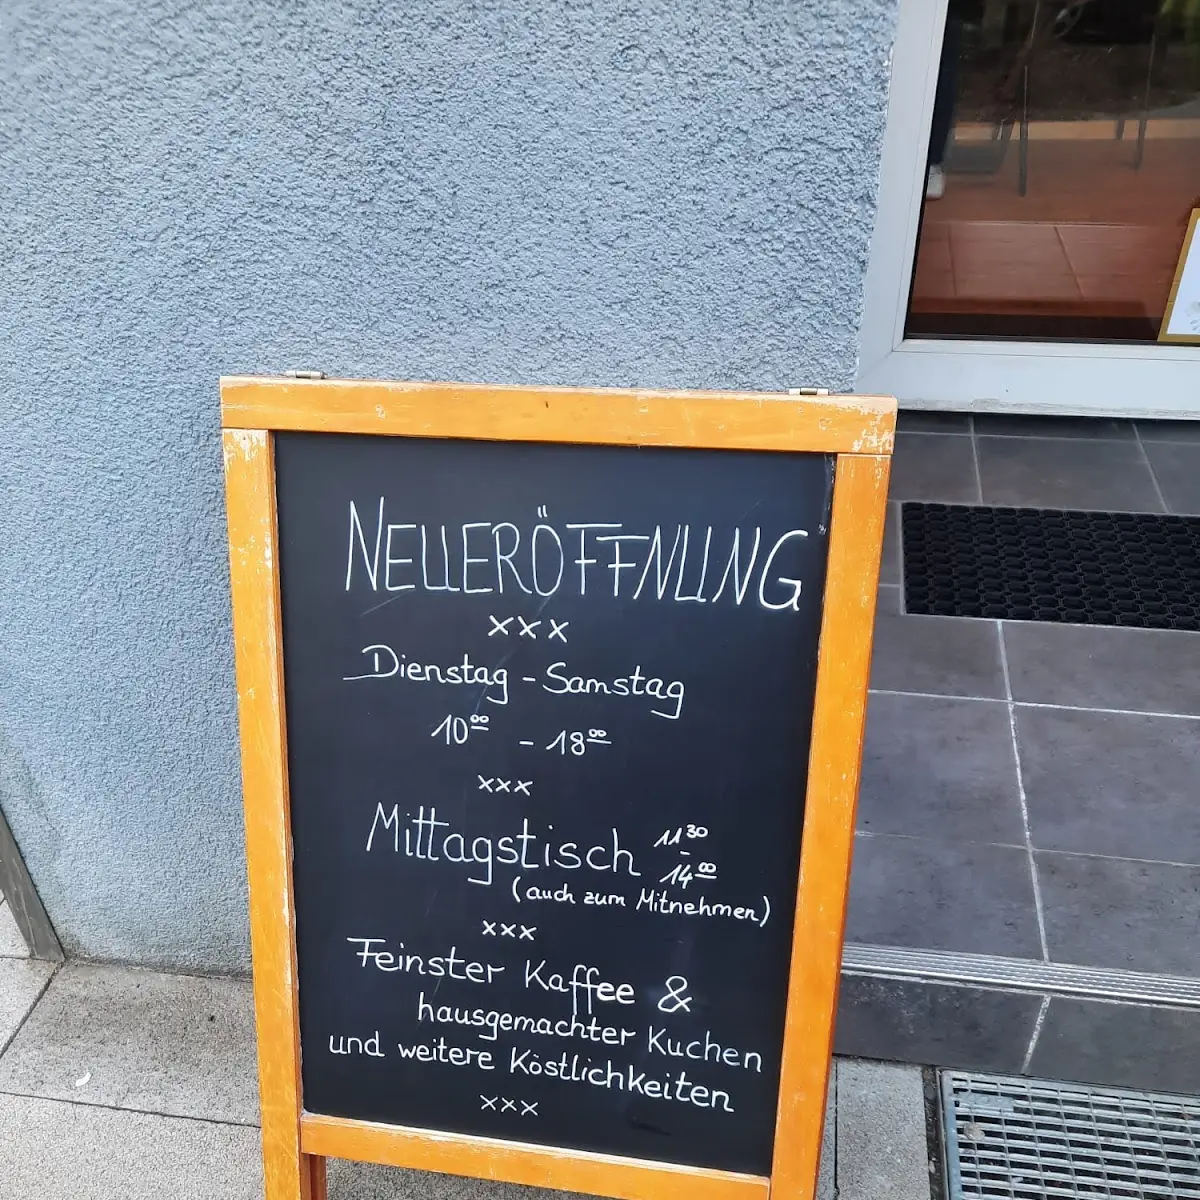 NEUERÖFFNUNG
xxx
Dienstag - Samstag
10⁰⁰ - 18⁰⁰
xxx
Mittagstisch 11³⁰ - 14⁰⁰
(auch zum Mitnehmen)
xxx
Feinster Kaffee &
hausgemachter Kuchen
und weitere Köstlichkeiten
xxx